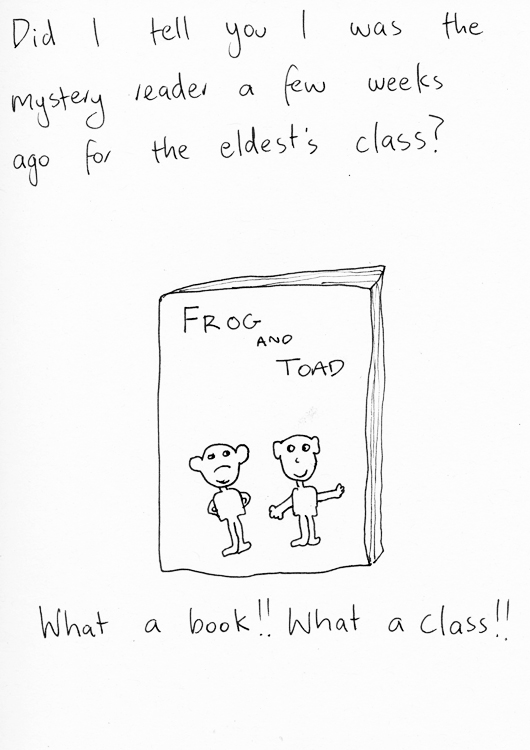 Did I tell you I was the
mystery reader a few weeks
ago for the eldest's class?
FROG
AND
TOAD
What a book!! What a class!!